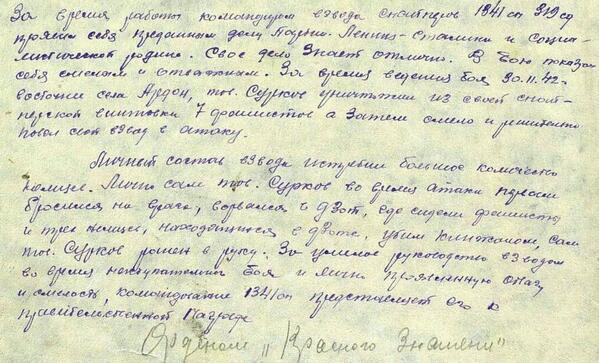 За время работы командиром взвода снайперов 1341 сп 319 сд
проявил себя преданным делу партии Ленина-Сталина и социа-
листической родине. Свое дело знает отлично. В бою показал
себя смелым и отважным. За время ведения боя 30.11.42г.
восточнее села Ардон, тов. Сурков уничтожил из своей снай-
перской винтовки 7 фашистов а затем смело и решительно
повел свой взвод в атаку.
Личный состав взвода истребил большое количество
немцев. Лично сам тов. Сурков во время атаки первым
бросился на врага, ворвался в дзот, где сидели фашисты
и трех немцев, находящихся в дзоте, убил кинжалом, сам
тов. Сурков ранен в руку. За умелое руководство взводом
во время наступательного боя и лично проявленную отвагу
и смелость, командование 1341 сп представляет его к
правительственной награде
Орденом „Красного Знамени"